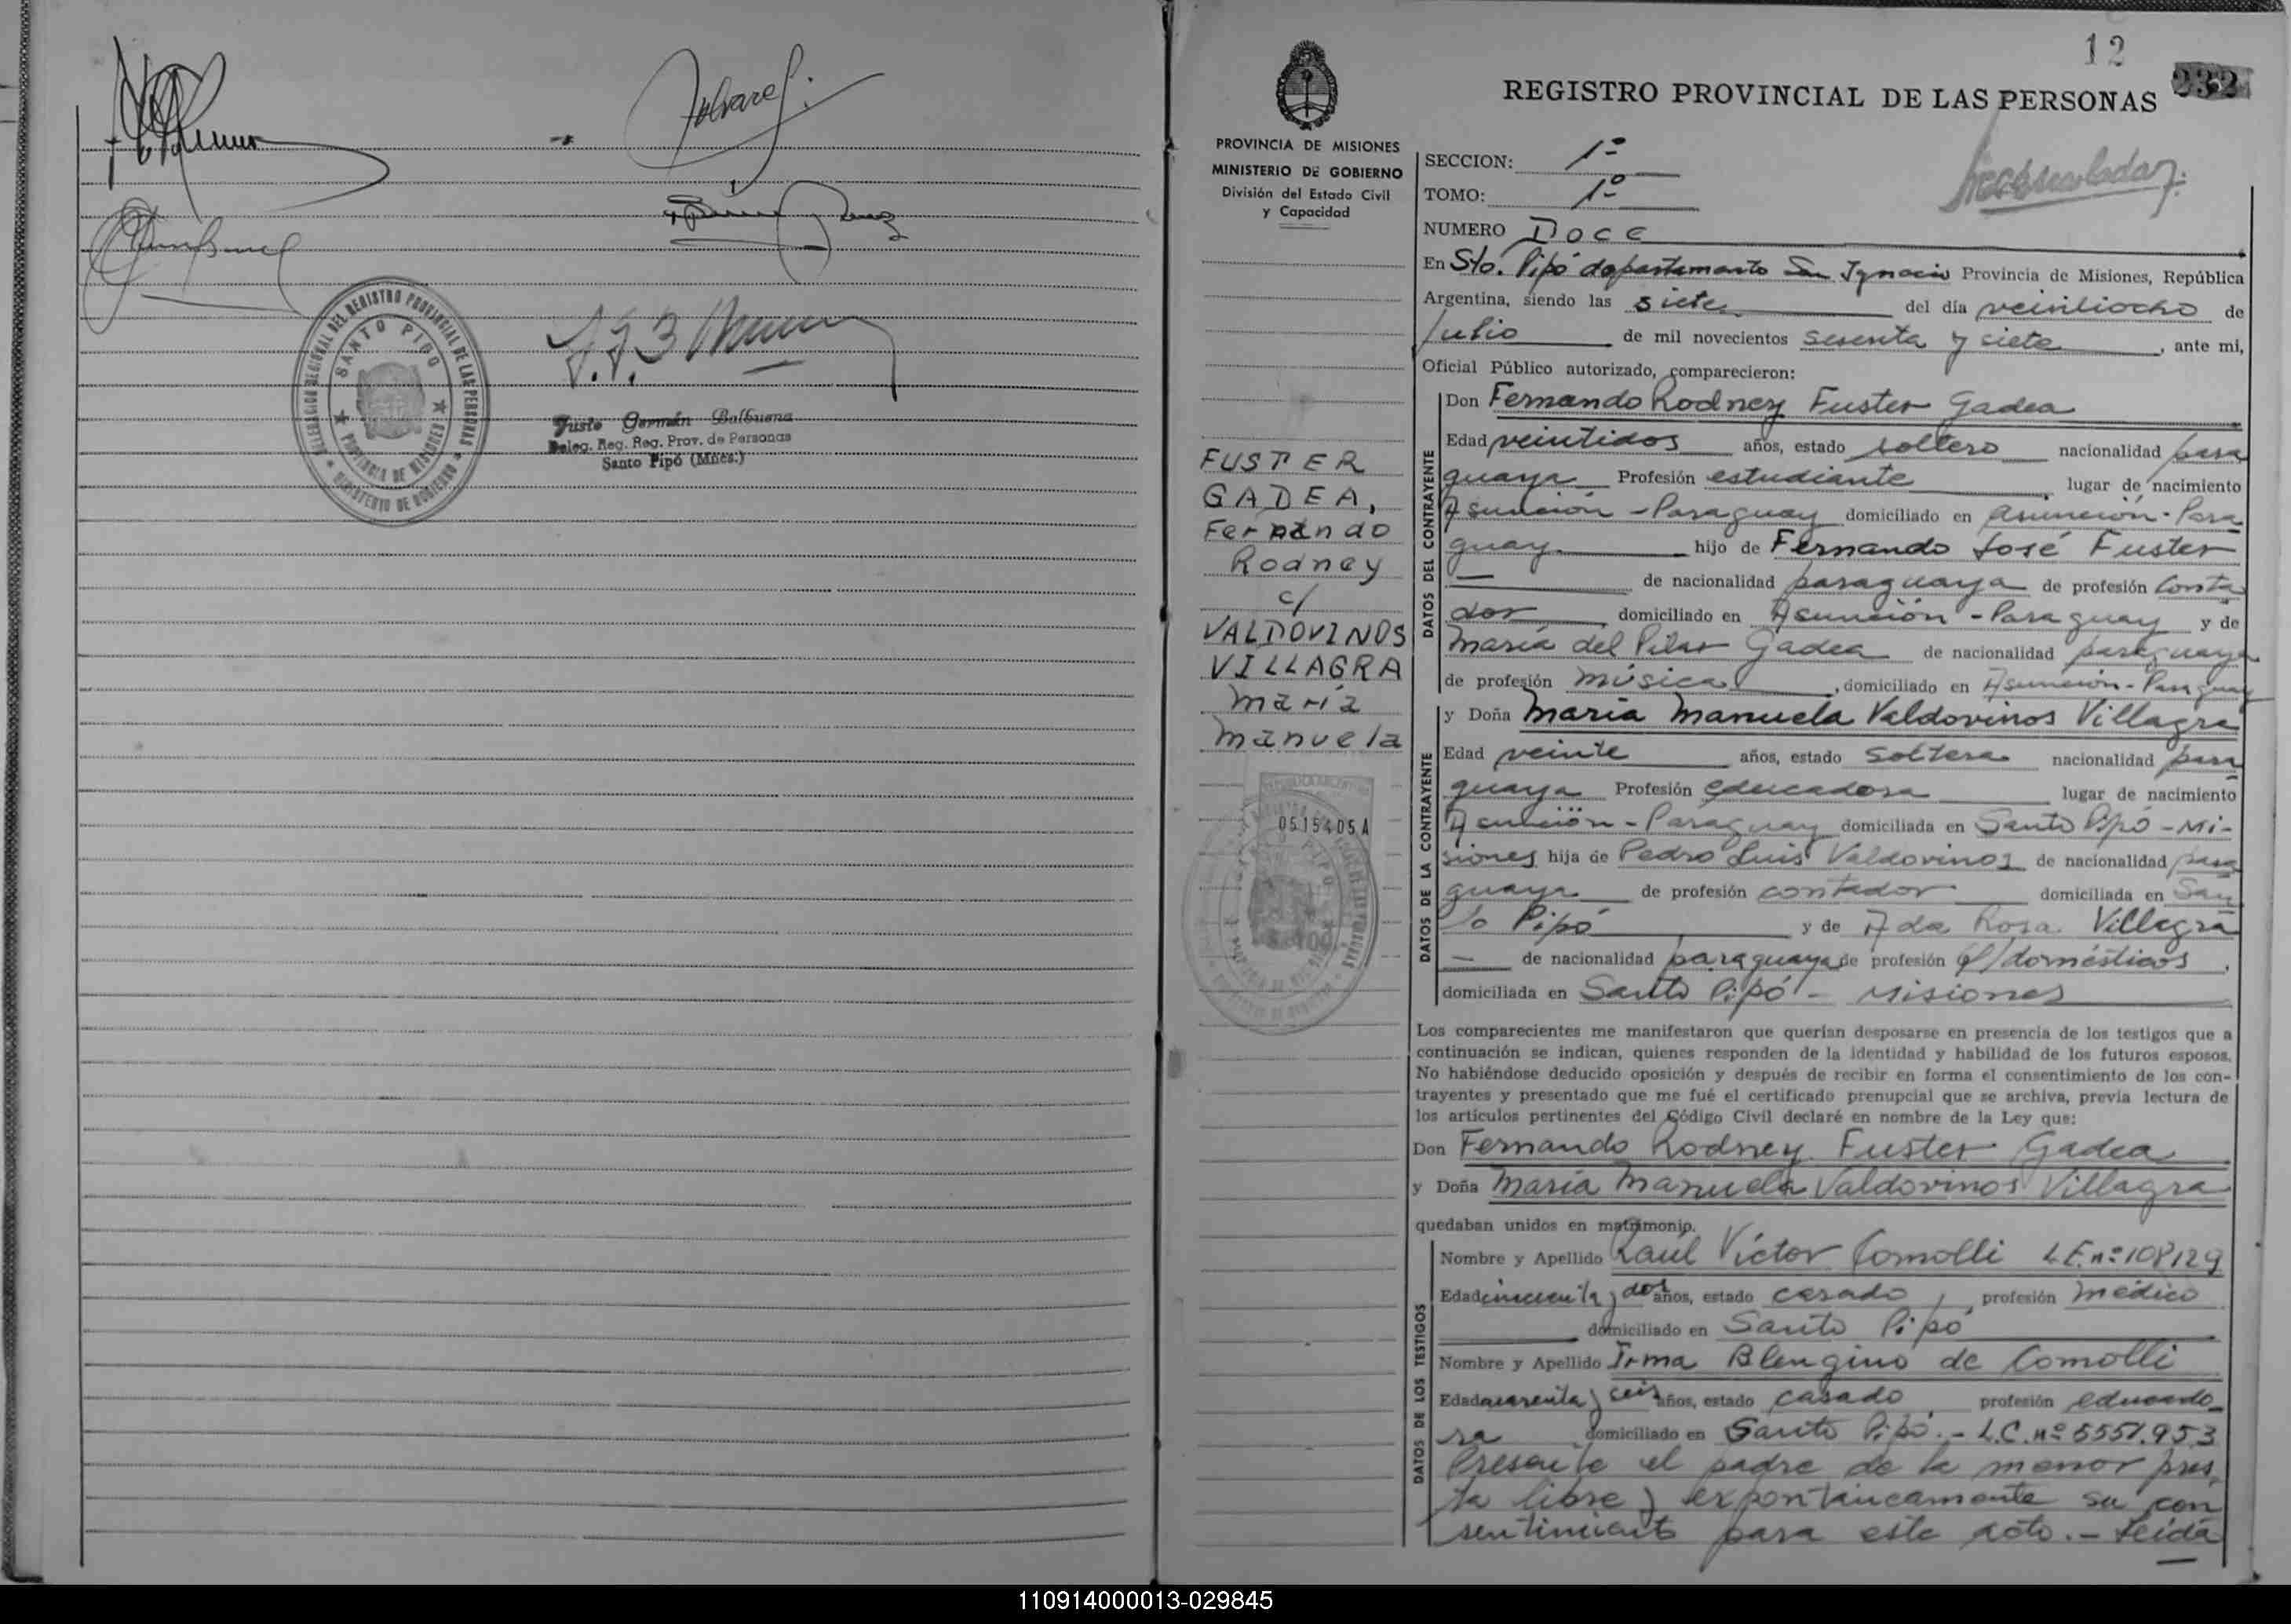 Alvarez
DELEGACION REGIONAL DEL REGISTRO PROVINCIAL DE LAS PERSONAS
SANTO PIPO
PROVINCIA DE MISIONES
MINISTERIO DE GOBIERNO
Justo Germán Balbuena
Deleg. Reg. Reg. Prov. de Personas
Santo Pipó (Mnes.)
12
232
REGISTRO PROVINCIAL DE LAS PERSONAS
PROVINCIA DE MISIONES
MINISTERIO DE GOBIERNO
División del Estado Civil
y Capacidad
SECCION: 1º
TOMO: 1º
NUMERO Doce
En Sto. Pipó departamento San Ignacio Provincia de Misiones, República
Argentina, siendo las siete del día veintiocho de
Julio de mil novecientos sesenta y siete, ante mi,
Oficial Público autorizado, comparecieron:
FUSTER
GADEA,
Fernando
Rodney
c/
VALDOVINOS
VILLAGRA
María
Manuela
0515405A
DATOS DEL CONTRAYENTE
Don Fernando Rodney Fuster Gadea
Edad veintidos años, estado soltero nacionalidad para
guaya Profesión estudiante, lugar de nacimiento
Asunción - Paraguay domiciliado en Asunción - Para
guay. hijo de Fernando José Fuster
— de nacionalidad paraguaya de profesión Conta
dor, domiciliado en Asunción - Paraguay y de
María del Pilar Gadea de nacionalidad paraguaya
de profesión música, domiciliado en Asunción - Paraguay
DATOS DE LA CONTRAYENTE
y Doña María Manuela Valdovinos Villagra
Edad veinte años, estado soltera nacionalidad para
guaya Profesión educadora lugar de nacimiento
Asunción - Paraguay domiciliada en Santo Pipó - Mi-
siones hija de Pedro Luis Valdovinos de nacionalidad para
guaya de profesión contador domiciliada en San
to Pipó y de Ada Rosa Villagra
— de nacionalidad paraguaya de profesión q/domésticos,
domiciliada en Santo Pipó - Misiones
Los comparecientes me manifestaron que querían desposarse en presencia de los testigos que a
continuación se indican, quienes responden de la identidad y habilidad de los futuros esposos.
No habiéndose deducido oposición y después de recibir en forma el consentimiento de los con-
trayentes y presentado que me fué el certificado prenupcial que se archiva, previa lectura de
los artículos pertinentes del Código Civil declaré en nombre de la Ley que:
Don Fernando Rodney Fuster Gadea
y Doña María Manuela Valdovinos Villagra
quedaban unidos en matrimonio.
DATOS DE LOS TESTIGOS
Nombre y Apellido Raúl Víctor Comolli L.E. nº 108129
Edad cincuenta y dos años, estado casado, profesión médico
domiciliado en Santo Pipó
Nombre y Apellido Irma Blengino de Comolli
Edad cuarenta y seis años, estado casado, profesión educado_
ra domiciliado en Santo Pipó. - L.C. nº 5551.953
Presente el padre de la menor pres_
ta libre y expontáneamente su con
sentimiento para este acto. - Leída
110914000013-029845